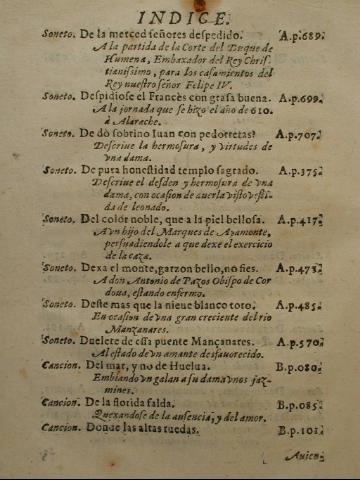 INDICE.
Soneto. De la merced señores despedido. A.p.689.
A la partida de la Corte del Duque de
Humena, Embaxador del Rey Chris-
tianissimo, para los casamientos del
Rey nuestro señor Felipe IV.
Soneto. Despidiose el Francès con grasa buena. A.p.699.
A la jornada que se hizo el año de 610
à Alarache.
Soneto. De dò sobrino Iuan con pedorretas? A.p.707.
Descriue la hermosura, y virtudes de
vna dama.
Soneto. De pura honestidad templo sagrado. A.p.375.
Descriue el desden y hermosura de vna
dama, con ocasion de auerla visto vesti-
da de leonado.
Soneto. Del color noble, que a la piel bellosa. A.p.417.
A vn hijo del Marques de Ayamonte,
persuadiendole a que dexe el exercicio
de la caza.
Soneto. Dexa el monte, garzon bello, no fies. A.p.473.
A don Antonio de Pazos Obispo de Cor
doua, estando enfermo.
Soneto. Deste mas que la nieue blanco toro. A.p.485.
En ocasion de vna gran creciente del rio
Manzanares.
Soneto. Duelete de essa puente Mançanares. A.p.570.
Al estado de vn amante desfauorecido.
Cancion. Del mar, y no de Huelua. B.p.080.
Embiando vn galan a su dama vnos jaz-
mines.
Cancion. De la florida falda. B.p.085.
Quexandose de la ausencia, y del amor.
Cancion. Donde las altas ruedas. B.p.101.
Auien-